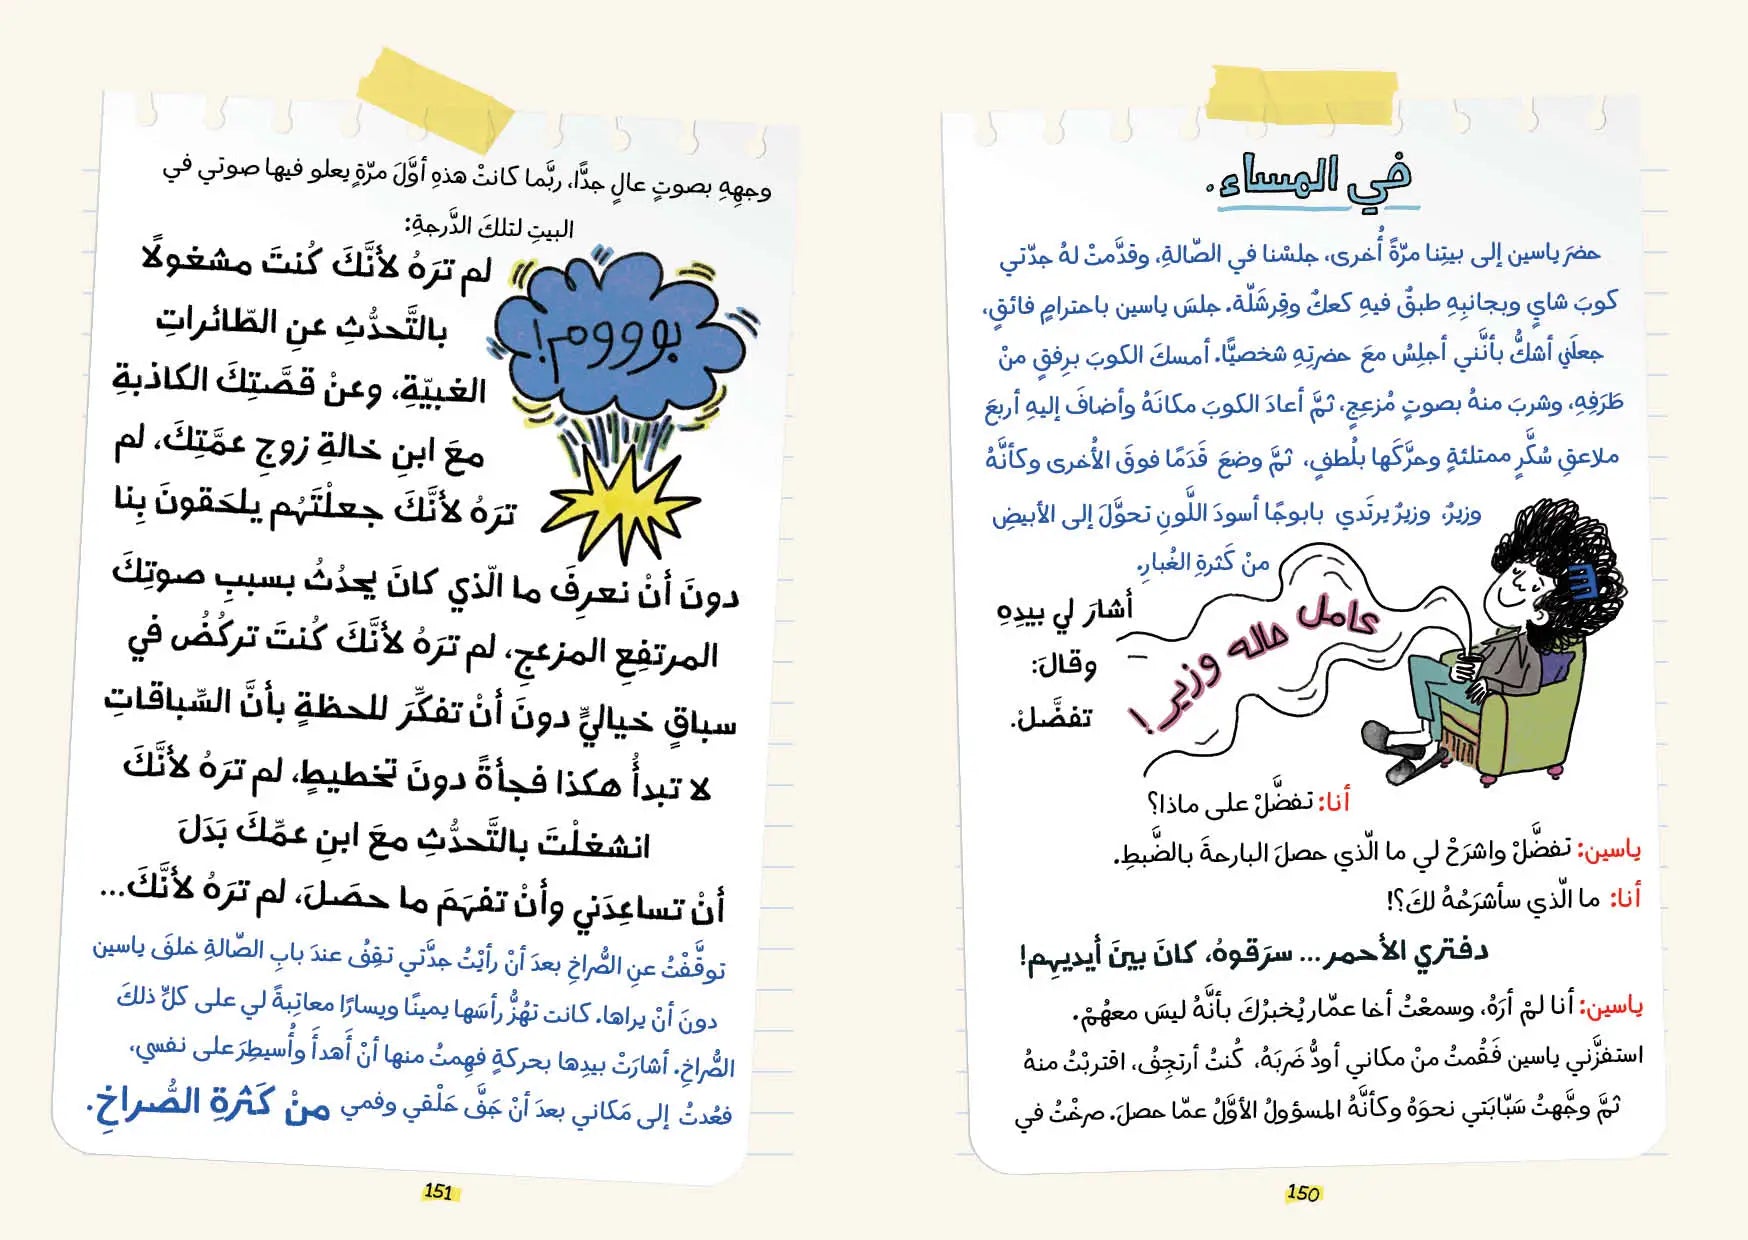 في المساء.
حضرَ ياسين إلى بيتِنا مرّةً أُخرى، جلسْنا في الصّالةِ، وقدَّمتْ لهُ جدّتي
كوبَ شايٍ وبجانبِهِ طبقٌ فيهِ كعكٌ وقِرشَلّة. جلسَ ياسين باحترامٍ فائقٍ،
جعلَني أشكُّ بأنَّني أجلِسُ معَ حضرتِهِ شخصيًّا. أمسكَ الكوبَ برِفقٍ منْ
طَرَفِهِ، وشربَ منهُ بصوتٍ مُزعِجٍ، ثمَّ أعادَ الكوبَ مكانَهُ وأضافَ إليهِ أربعَ
ملاعقِ سُكَّرٍ ممتلئةٍ وحرَّكَها بلُطفٍ، ثمَّ وضعَ قَدَمًا فوقَ الأُخرى وكأنَّهُ
وزيرٌ، وزيرٌ يرتَدي بابوجًا أسودَ اللَّونِ تحوَّلَ إلى الأبيضِ
منْ كَثرةِ الغُبارِ.
أشارَ لي بيدِهِ
وقالَ:
تفضَّلْ.
عامل حاله وزير!
أنا: تفضَّلْ على ماذا؟
ياسين: تفضَّلْ واشرَحْ لي ما الّذي حصلَ البارحةَ بالضَّبطِ.
أنا: ما الّذي سأشرَحُهُ لكَ؟!
دفتري الأحمر... سرَقوهُ، كانَ بينَ أيديهِم!
ياسين: أنا لمْ أرَهُ، وسمعْتُ أخا عمّار يُخبرُكَ بأنَّهُ ليسَ معهُمْ.
استفزَّني ياسين فَقُمتُ منْ مكاني أودُّ ضَربَهُ، كُنتُ أرتجِفُ، اقتربْتُ منهُ
ثمَّ وجَّهتُ سَبّابَتي نحوَهُ وكأنَّهُ المسؤولُ الأوَّلُ عمّا حصلَ. صرخْتُ في
150
وجهِهِ بصوتٍ عالٍ جدًّا، ربَّما كانتْ هذهِ أوَّلَ مرّةٍ يعلو فيها صوتي في
البيتِ لتلكَ الدَّرجةِ:
بوووم!
لم ترَهُ لأنَّكَ كُنتَ مشغولًا
بالتَّحدُّثِ عنِ الطّائراتِ
الغبيّةِ، وعنْ قصَّتِكَ الكاذبةِ
معَ ابنِ خالةِ زوجِ عمَّتِكَ، لم
ترَهُ لأنَّكَ جعلْتَهُم يلحَقونَ بِنا
دونَ أنْ نعرِفَ ما الّذي كانَ يحدُثُ بسببِ صوتِكَ
المرتفِعِ المزعجِ، لم ترَهُ لأنَّكَ كُنتَ تركُضُ في
سباقٍ خياليٍّ دونَ أنْ تفكِّرَ للحظةٍ بأنَّ السِّباقاتِ
لا تبدأُ هكذا فجأةً دونَ تخطيطٍ، لم ترَهُ لأنَّكَ
انشغلْتَ بالتَّحدُّثِ معَ ابنِ عمِّكَ بَدَلَ
أنْ تساعِدَني وأنْ تفهَمَ ما حصَلَ، لم ترَهُ لأنَّكَ...
توقَّفْتُ عنِ الصُّراخِ بعدَ أنْ رأيْتُ جدَّتي تقِفُ عندَ بابِ الصّالةِ خلفَ ياسين
دونَ أنْ يراها. كانت تهُزُّ رأسَها يمينًا ويسارًا معاتِبةً لي على كلِّ ذلكَ
الصُّراخِ. أشارَتْ بيدِها بحركةٍ فهِمتُ منها أنْ أَهدأَ وأُسيطِرَ على نفسي،
فعُدتُ إلى مَكاني بعدَ أنْ جَفَّ حَلْقي وفمي منْ كَثرةِ الصُّراخِ.
151